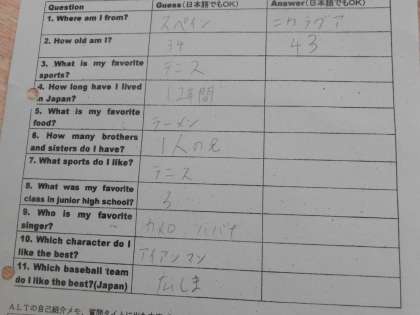 Question Guess(日本語でもOK) Answer(日本語でもOK)
1. Where am I from? スペイン ニカラグア
2. How old am I? 34 43
3. What is my favorite
sports? テニス
4. How long have I lived
in Japan? 12年間
5. What is my favorite
food? ラーメン
6. How many brothers
and sisters do I have? 1人の兄
7. What sports do I like? テニス
8. What was my favorite
class in junior high school? 3
9. Who is my favorite
singer? カメロ
10. Which character do I
like the best? アイアンマン
11. Which baseball team
do I like the best?(Japan) 広しま
ALTの自己紹介メモ、質問タイムに